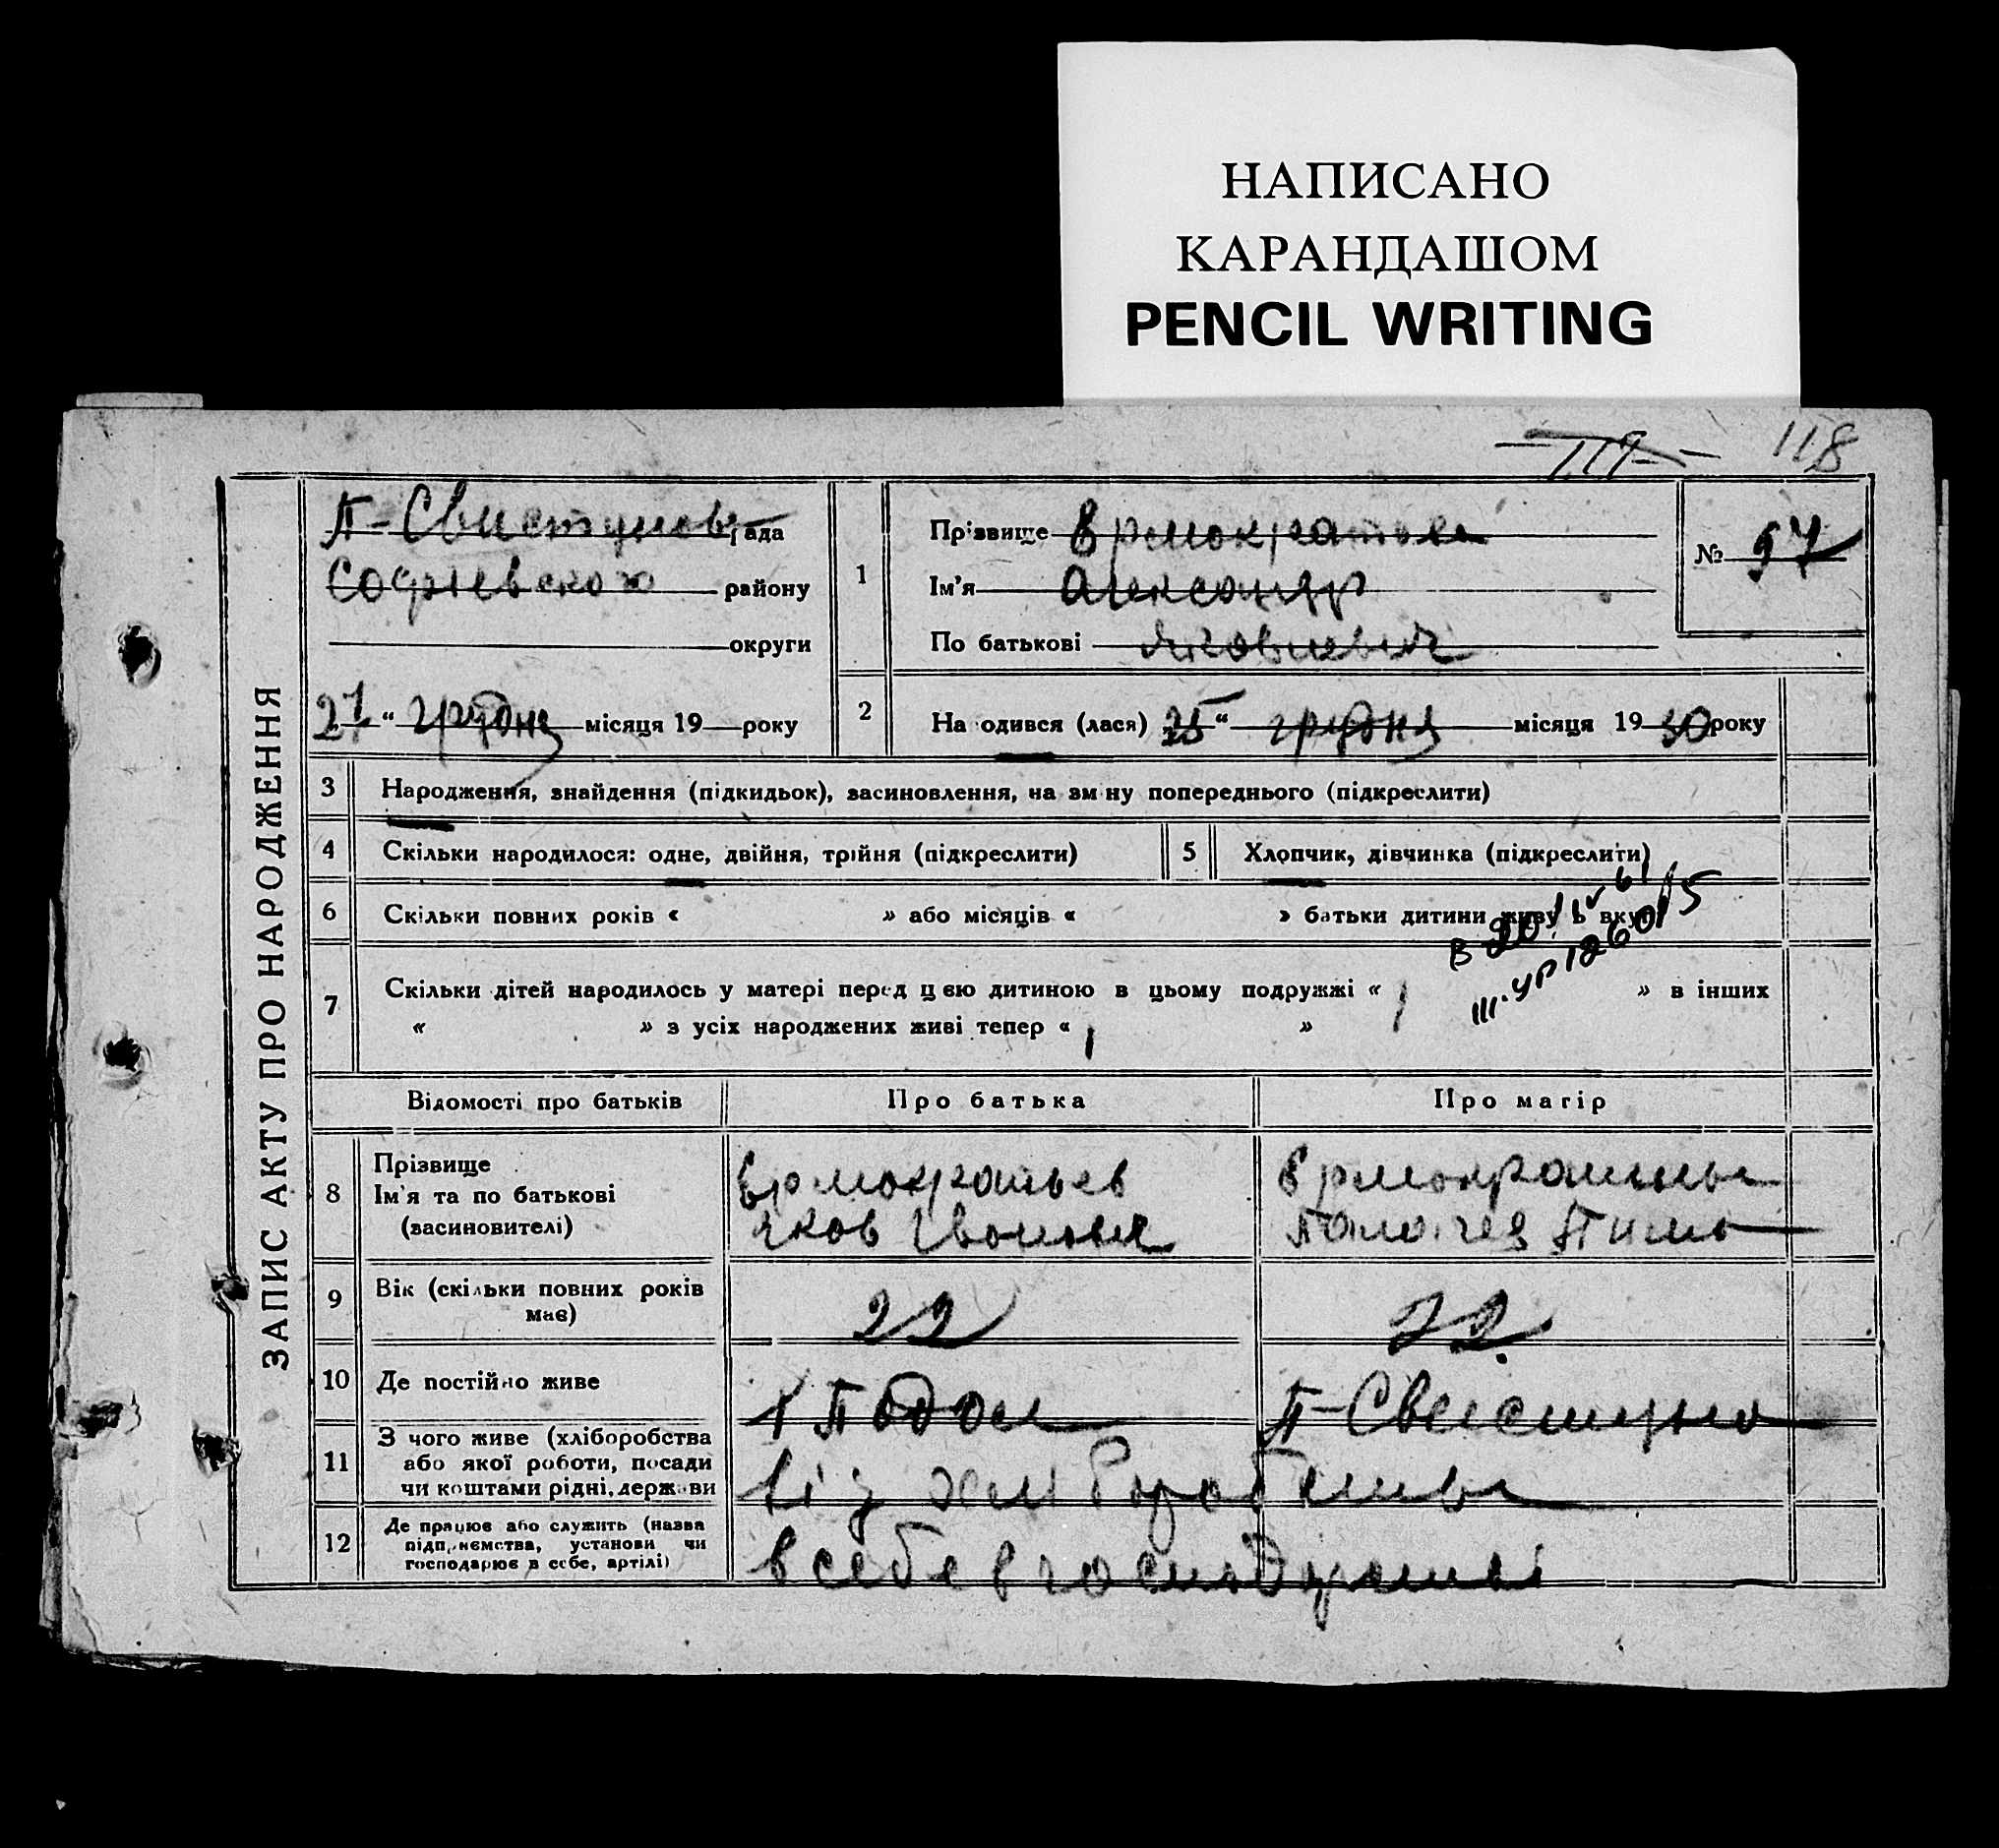 НАПИСАНО
КАРАНДАШОМ
PENCIL WRITING
119 118
ЗАПИС АКТУ ПРО НАРОДЖЕННЯ
П-Свистунов рада
Софиевского району
округи
27 " грудня місяця 19 року
1
Прізвище Ермократьев
Ім'я Александр
По батькові Яковлевич
№ 97
2 Народився (лася) 25 " грудня місяця 19 30 року
3 Народження, знайдення (підкидьок), засиновлення, на зміну попереднього (підкреслити)
4 Скільки народилося: одне, двійня, трійня (підкреслити) 5 Хлопчик, дівчинка (підкреслити)
6 Скільки повних років « » або місяців « » батьки дитини живуть вкупі
7 Скільки дітей народилось у матері перед цєю дитиною в цьому подружжі « 1 » в інших
« » з усіх народжених живі тепер « 1 »
Відомості про батьків Про батька Про матір
8 Прізвище
Ім'я та по батькові
(засиновителі)
Ермократьев
Яков Іванович
9 Вік (скільки повних років
має)
22 22
10 Де постійно живе
П-Свистуно
11 З чого живе (хліборобства
або якої роботи, посади
чи коштами рідні, держави
від
12 Де працює або служить (назва
підприємства, установи чи
господарює в себе, артілі)
в себе в господарстві